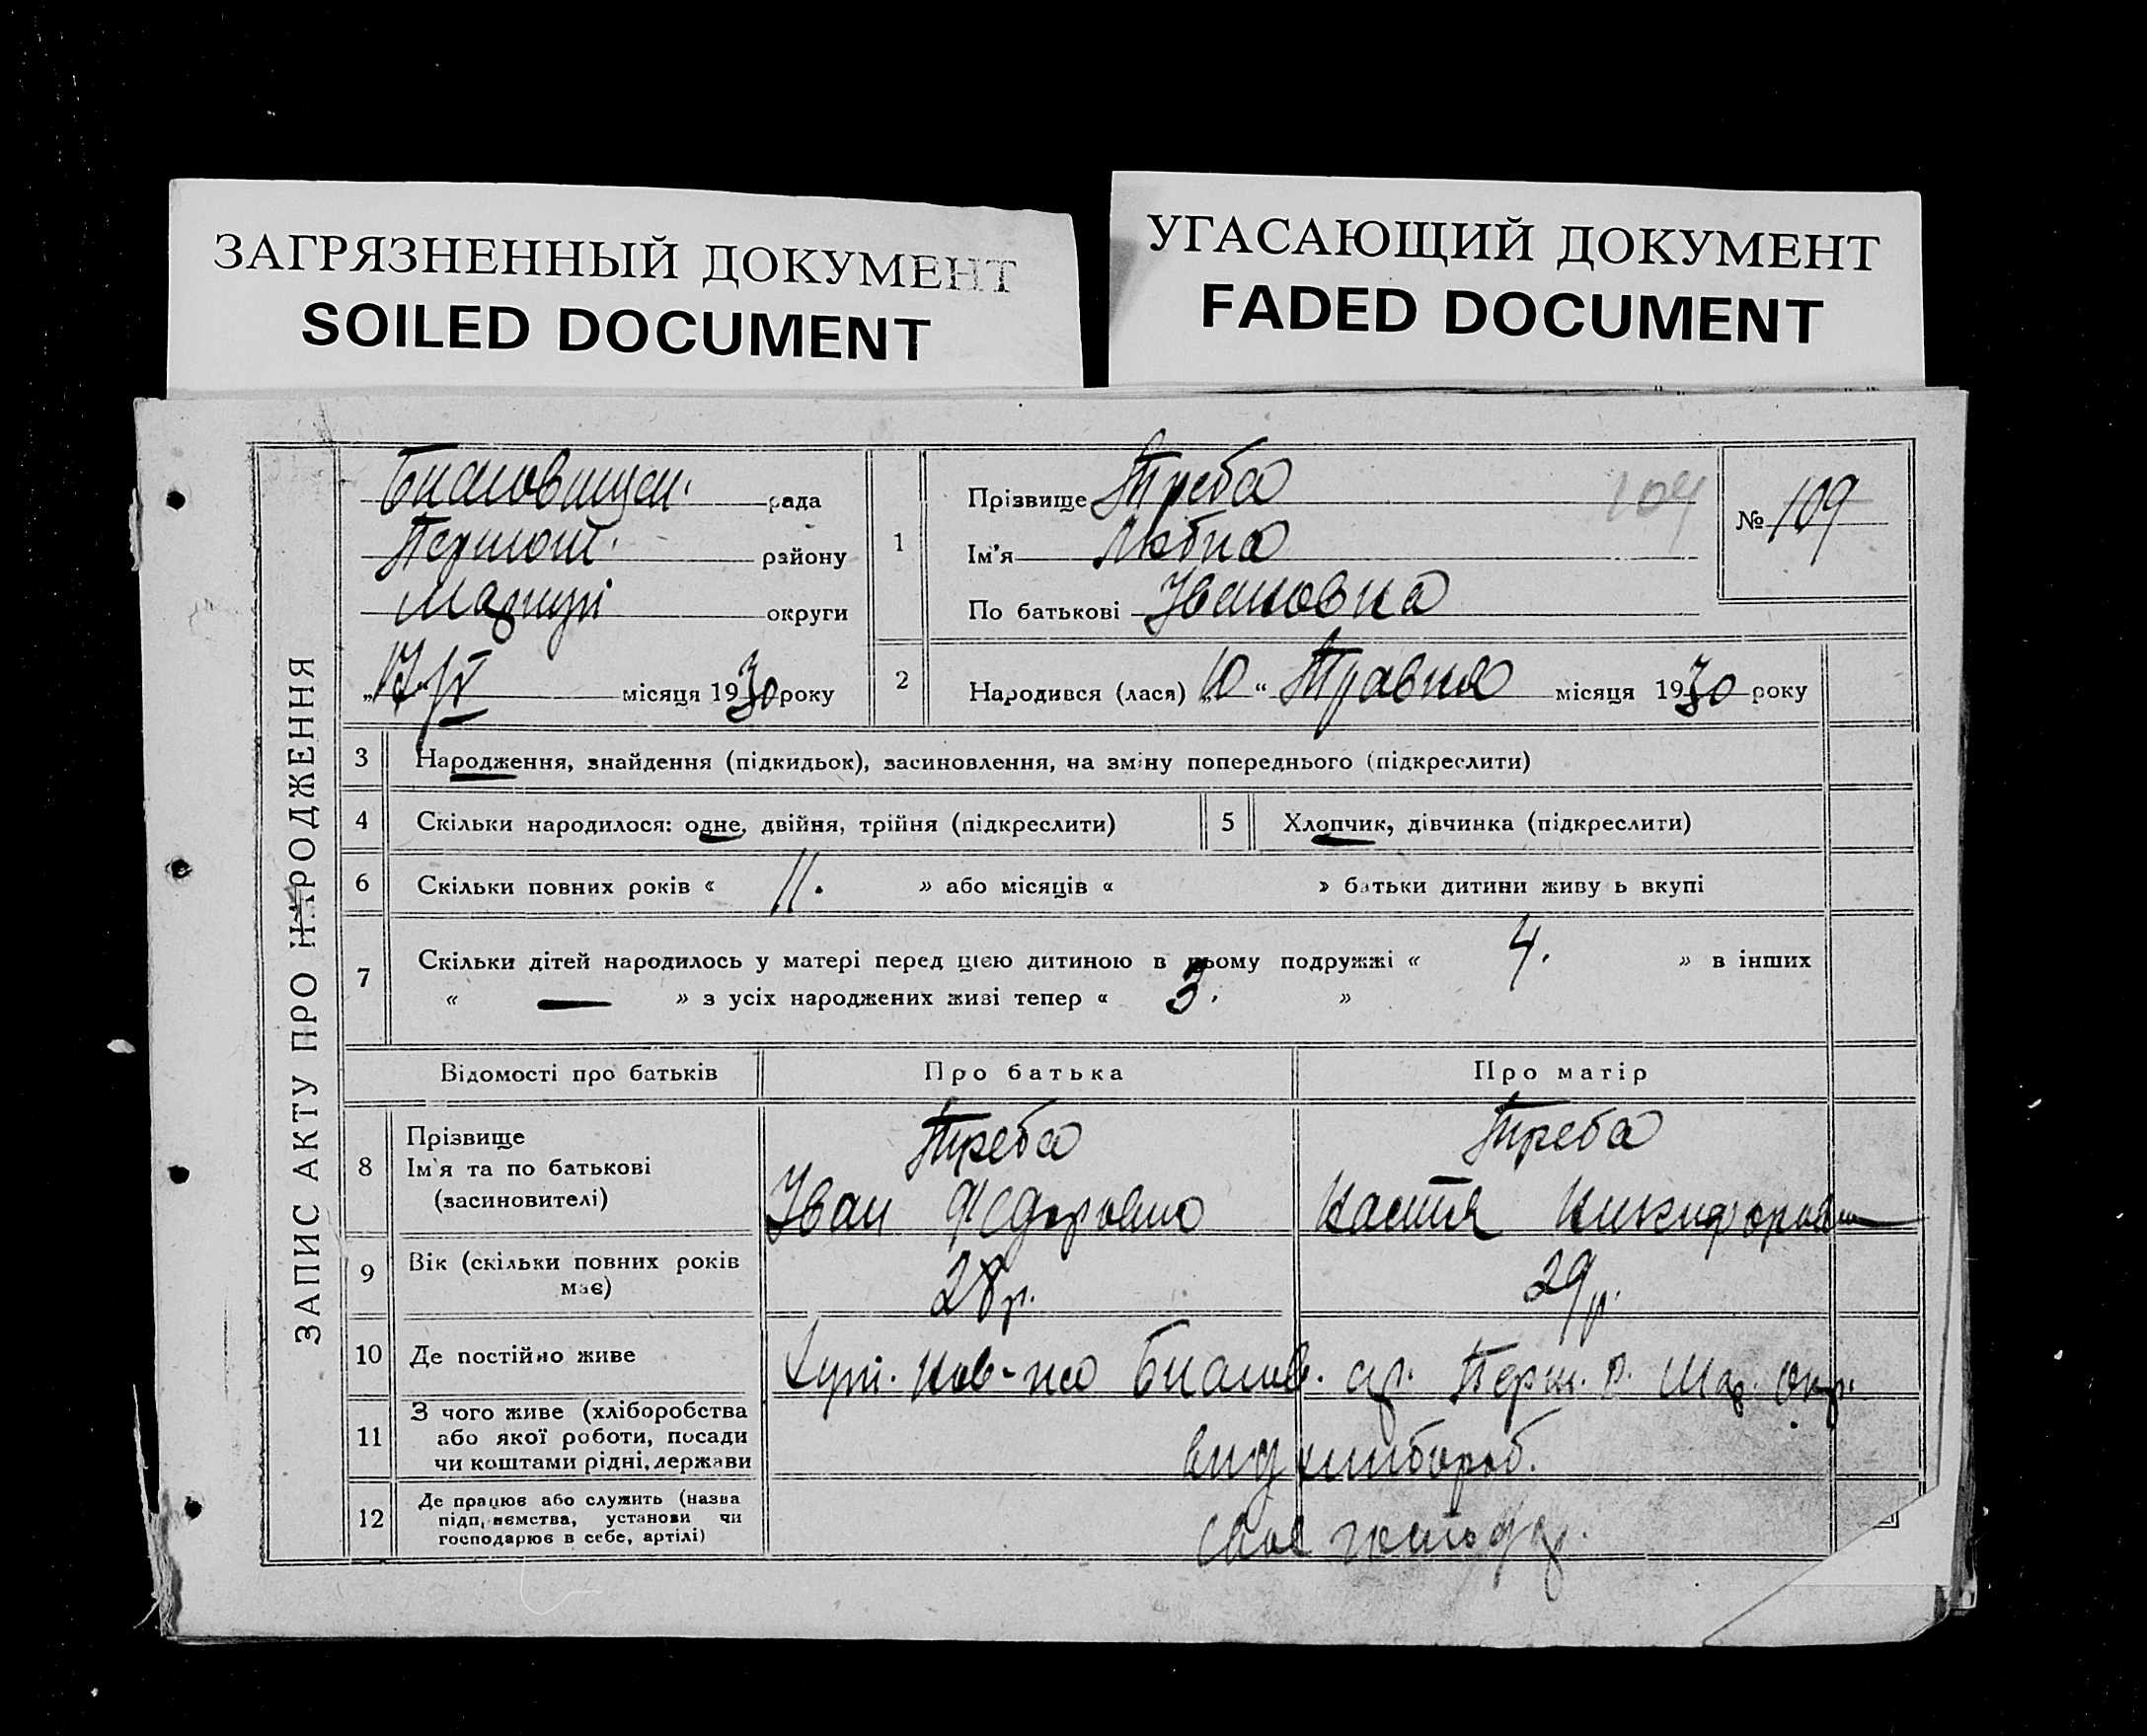 ЗАГРЯЗНЕННЫЙ ДОКУМЕНТ
SOILED DOCUMENT
УГАСАЮЩИЙ ДОКУМЕНТ
FADED DOCUMENT
ЗАПИС АКТУ ПРО НАРОДЖЕННЯ
рада
району
Маріупі округи
„17/V місяця 1930 року
1
Прізвище Треба
Ім'я Любка
По батькові Івановна
109
№ 109
2
Народився (лася) „10“ Травня місяця 1930 року
3 Народження, знайдення (підкидьок), засиновлення, на зміну попереднього (підкреслити)
4 Скільки народилося: одне, двійня, трійня (підкреслити)
5 Хлопчик, дівчинка (підкреслити)
6 Скільки повних років « 11. » або місяців « » батьки дитини живу ь вкупі
7 Скільки дітей народилось у матері перед цією дитиною в цьому подружжі « 4. » в інших
« — » з усіх народжених живі тепер « 3. »
Відомості про батьків Про батька Про матір
8 Прізвище
Ім'я та по батькові
(засиновителі)
Треба
Іван Федорович
Треба
Настя Никифоровн
9 Вік (скільки повних років має)
28 р.
29 р.
10 Де постійно живе
Хут. Нов-ко Перш. р. Мар. Окр.
11 З чого живе (хліборобства
або якої роботи, посади
чи коштами рідні, держави
хлібороб.
12 Де працює або служить (назва
підприємства, установи чи
господарює в себе, артілі)
своє господ.